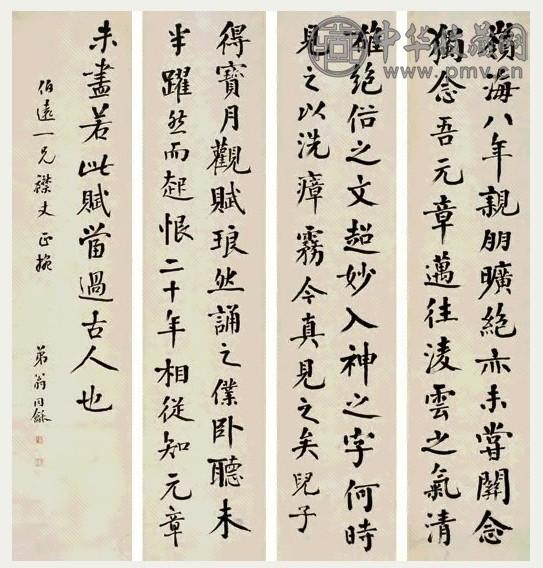 嶺海八年親朋曠絕亦未嘗關念
獨念吾元章邁往淩雲之氣清
雄絕俗之文超妙入神之字何時
見之以洗瘴霧今真見之矣兒子
得寶月觀賦琅然誦之僕卧聽未
半躍然而起恨二十年相從知元章
未盡若此賦當過古人也
伯遠一兄襟丈正捥
弟翁同龢
中华收藏网
www.pmv.cn